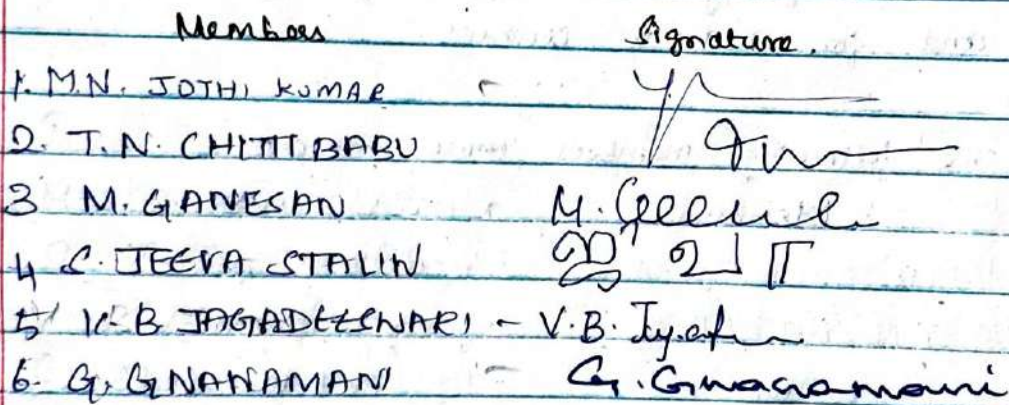 Members Signature.
1. M.N. JOTHI KUMAR -
2. T.N. CHITTIBABU
3 M. GANESAN M.
4 S. JEEVA STALIN ஜீவா
5 K.B JAGADEESWARI - V.B.
6. G. GNANAMANI - G. Gnanamani